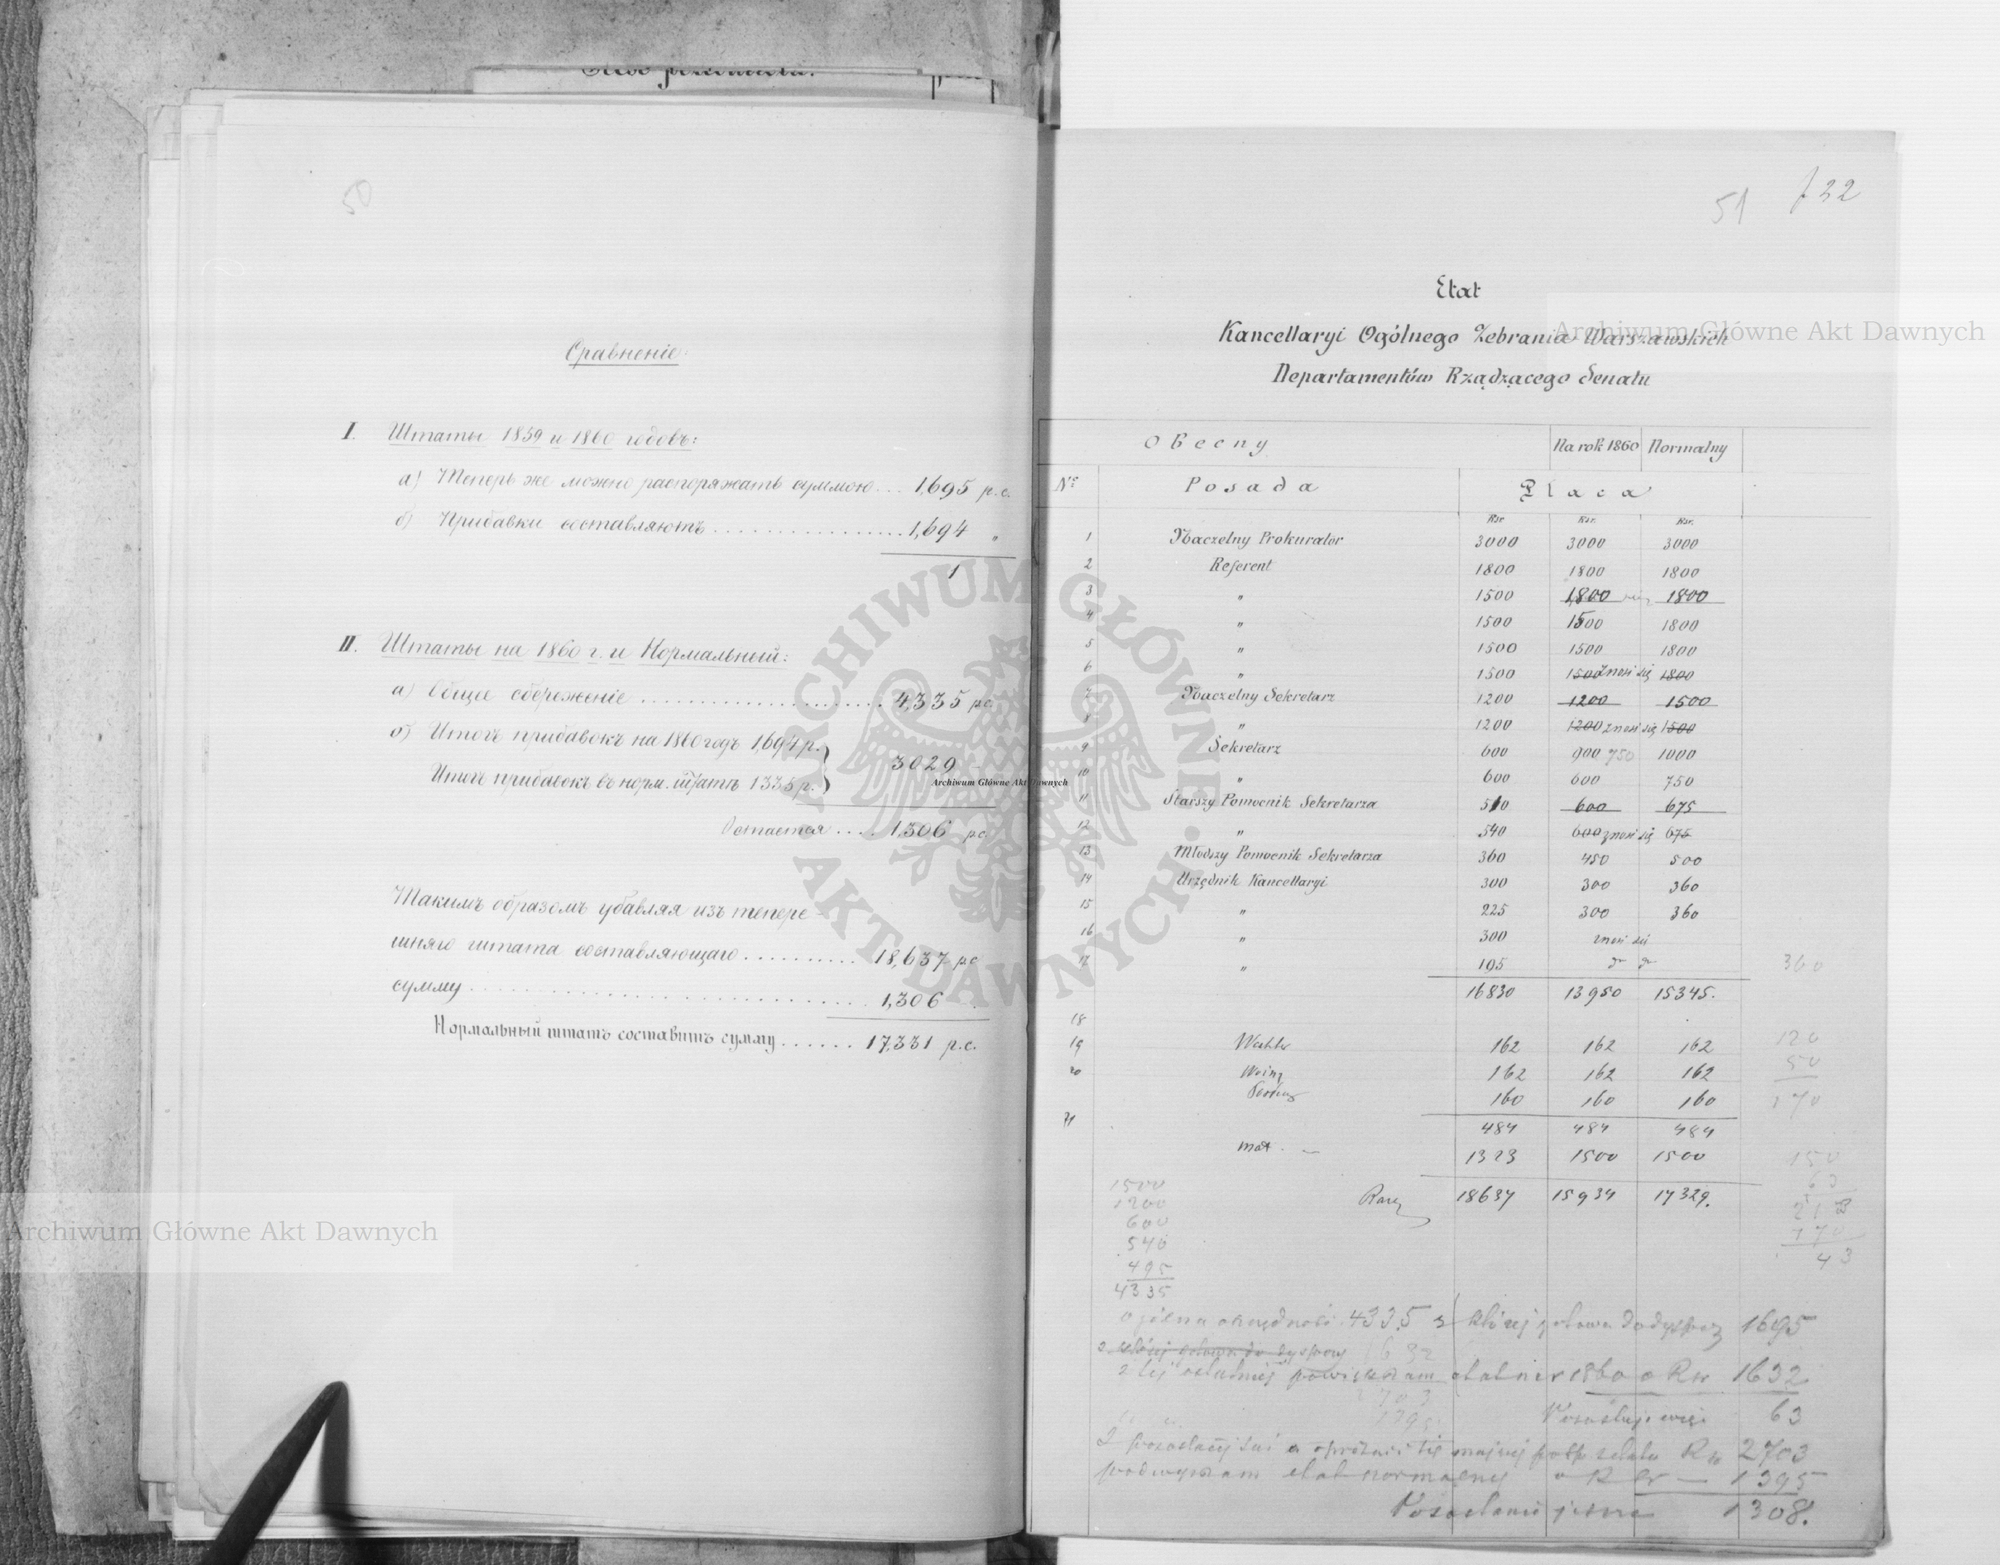 50
Сравненіе:
I. Штаты 1859 и 1860 годовъ:
а) Теперь же можно распоряжать суммою... 1,695 р. с.
б) Прибавки составляютъ ................. 1,694 "
1
II. Штаты на 1860 г. и Нормальный:
а) Общее сбереженіе ...................... 4,335 рс.
б) Итогъ прибавокъ на 1860 годъ 1,694 р.
Итогъ прибавокъ въ норм. штатъ 1335 р. } 3029
Остается .... 1,306 рс.
Такимъ образомъ убавляя изъ тепере-
шняго штата составляющаго .......... 18,637 рс
сумму ................................ 1,306
Нормальный штатъ составитъ сумму ...... 17,331 р.с.
51 132
Etat
Kancellaryi Ogólnego Zebrania Warszawskich
Departamentów Rządzącego Senatu
Obecny Na rok 1860 Normalny
№ Posada Płaca
Rsr. Rsr. Rsr.
1 Naczelny Prokurator 3000 3000 3000
2 Referent 1800 1800 1800
3 " 1500 1,800 1800
4 " 1500 1500 1800
5 " 1500 1500 1800
6 " 1500 1500 znosi się 1800
7 Naczelny Sekretarz 1200 1200 1500
8 " 1200 1200 znosi się 1500
9 Sekretarz 600 900 750 1000
10 " 600 600 750
11 Starszy Pomocnik Sekretarza 510 600 675
12 " 540 600 znosi się 675
13 Młodszy Pomocnik Sekretarza 360 450 500
14 Urzędnik Kancellaryi 300 300 360
15 " 225 300 360
16 " 300 znosi się
17 " 195 360
16830 13950 15345.
18
19 162 162 162 120
20 Woźny 162 162 162 50
160 160 160 170
484 484 484
21 Mat. — 1323 1500 1500 150
63
Razem 18637 15934 17329. 213
170
43
1500
1200
600
540
495
4335
ogólna oszczędność 4335 z której gotowa do dyspoz 1695
z której gotowa do dyspozy 1632
z tej ostatniej powiększam etat na r 1860 o Rsr 1632
Pozostaje więc 63
2703
podwyższam etat normalny o Rsr — 1395
Pozostanie jeszcze 1308.
Archiwum Główne Akt Dawnych
Archiwum Główne Akt Dawnych
Archiwum Główne Akt Dawnych
ARCHIWUM GŁÓWNE · AKT DAWNYCH ·